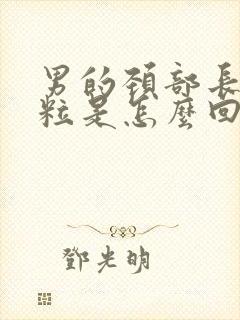 男的頚部長
粒是怎麼回
鄧光明